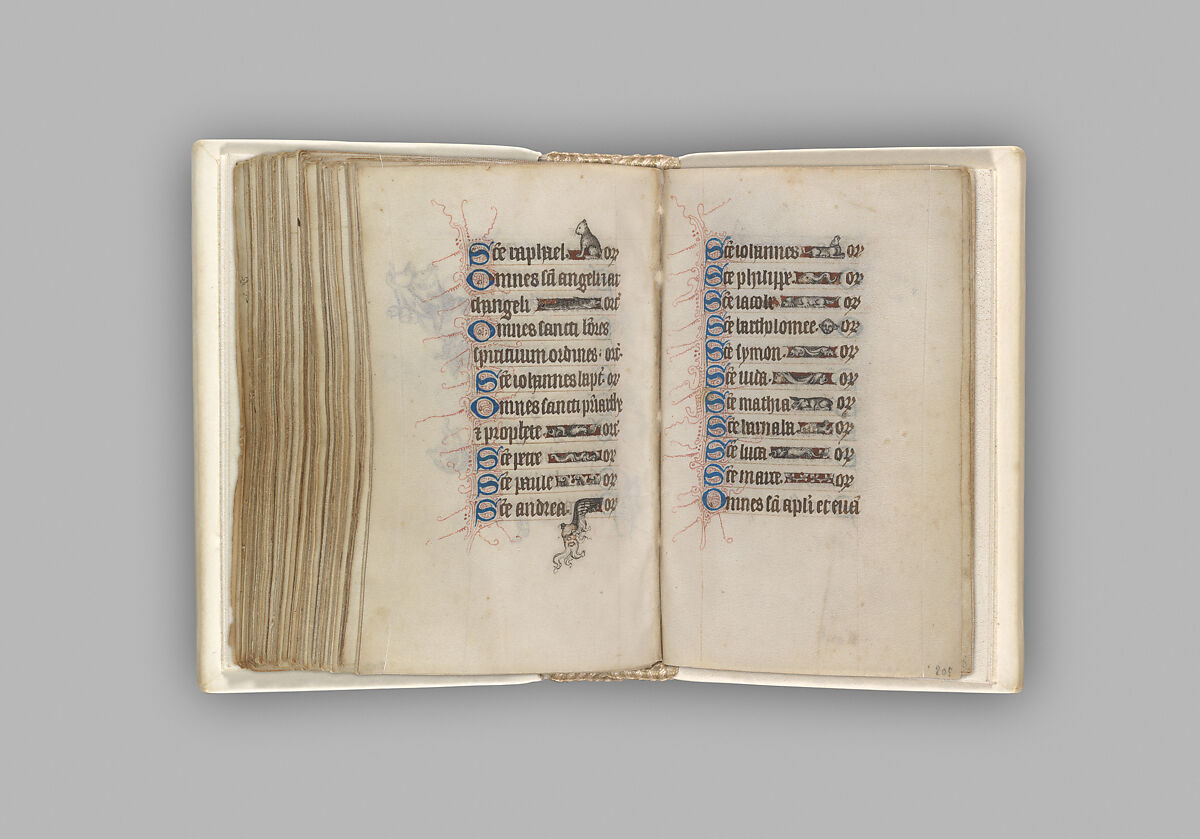 Sc̄e raphael or̄
Omnes sc̄i angeli ⁊ ar
changeli orͭ
Omnes sancti b̄ores
spirituum ordines · orͭ·
Sc̄e iohannes bapt· or̄
Omnes sancti pr̄iarche
⁊ prophete orͭ
Sc̄e petre or̄
Sc̄e paule or̄
Sc̄e andrea· or̄
Sc̄e iohannes or̄
Sc̄e philippe or̄
Sc̄e iacobe or̄
Sc̄e bartholomee or̄
Sc̄e symon or̄
Sc̄e iuda or̄
Sc̄e mathia or̄
Sc̄e barnaba or̄
Sc̄e luca or̄
Sc̄e marce or̄
Omnes sc̄i apl̄i et euā
205